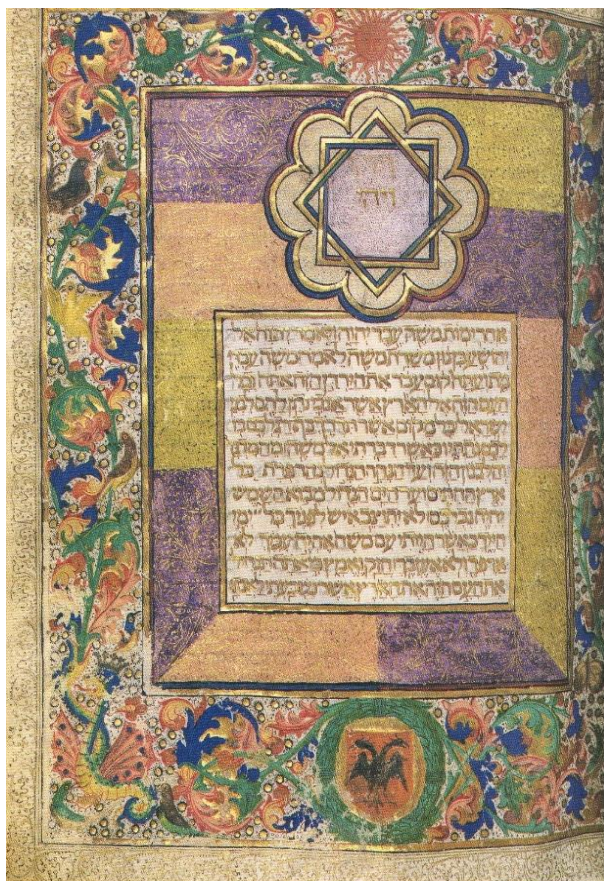 ויהי
אחרי מות משה עבד יהוה ויאמר יהוה אל
יהושע בן נון משרת משה לאמר משה עבדי
מת ועתה קום עבר את הירדן הזה אתה וכל
העם הזה אל הארץ אשר אנכי נתן להם לבני
ישראל כל מקום אשר תדרך כף רגלכם בו
לכם נתתיו כאשר דברתי אל משה מהמדבר
והלבנון הזה ועד הנהר הגדול נהר פרת כל
ארץ החתים ועד הים הגדול מבוא השמש
יהיה גבולכם לא יתיצב איש לפניך כל ימי
חייך כאשר הייתי עם משה אהיה עמך לא
ארפך ולא אעזבך חזק ואמץ כי אתה תנחיל
את העם הזה את הארץ אשר נשבעתי